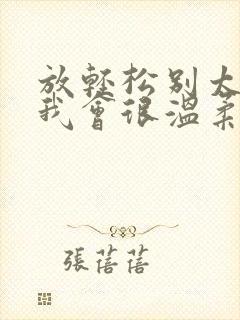 放輕松别太
我會很溫柔
張蓓蓓